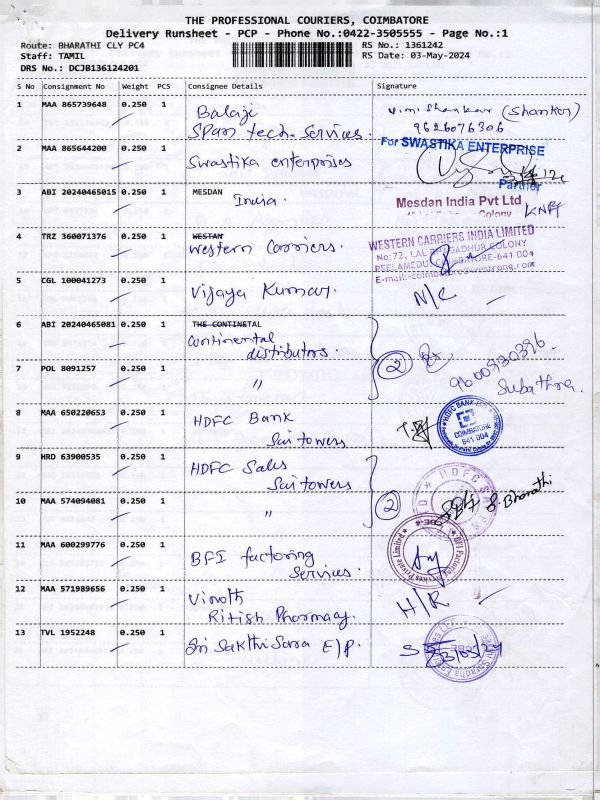 THE PROFESSIONAL COURIERS, COIMBATORE
Delivery Runsheet - PCP - Phone No.:0422-3505555 - Page No.:1
Route: BHARATHI CLY PC4
RS No.: 1361242
Staff: TAMIL
RS Date: 03-May-2024
DRS No.: DCJB136124201
S No Consignment No Weight PCS Consignee Details Signature
1 MAA 865739648 0.250 1 Balaji
Span tech. Services.
Vimi Shankar (Shankar)
9626076306
2 MAA 865644200 0.250 1 Swastika enterprises
For SWASTIKA ENTERPRISE
Partner
3 ABI 20240465015 0.250 1 MESDAN
India.
Mesdan India Pvt Ltd
Colony
4 TRZ 360071376 0.250 1 WESTAN
Western Carriers.
WESTERN CARRIERS INDIA LIMITED
No:72, LAL BAHADHUR COLONY
PEELAMEDU, COIMBATORE-641 004
5 CGL 100041273 0.250 1 Vijaya Kumar.
N/C
6 ABI 20240465081 0.250 1 THE CONTINETAL
Continental
distributors.
2
7 POL 8091257 0.250 1 "
9600930396.
Subathra.
8 MAA 650220653 0.250 1 HDFC Bank
Sai towers
HDFC BANK
COIMBATORE
641 004
9 HRD 63900535 0.250 1 HDFC Sales
Sai towers
HDFC SALES
10 MAA 574094081 0.250 1 "
2
S. Bharathi
11 MAA 600299776 0.250 1 BFI factoring
Services.
12 MAA 571989656 0.250 1 Vinoth
Ritish Pharmacy.
H/R
13 TVL 1952248 0.250 1 Sri Sakthi Sara E/P.